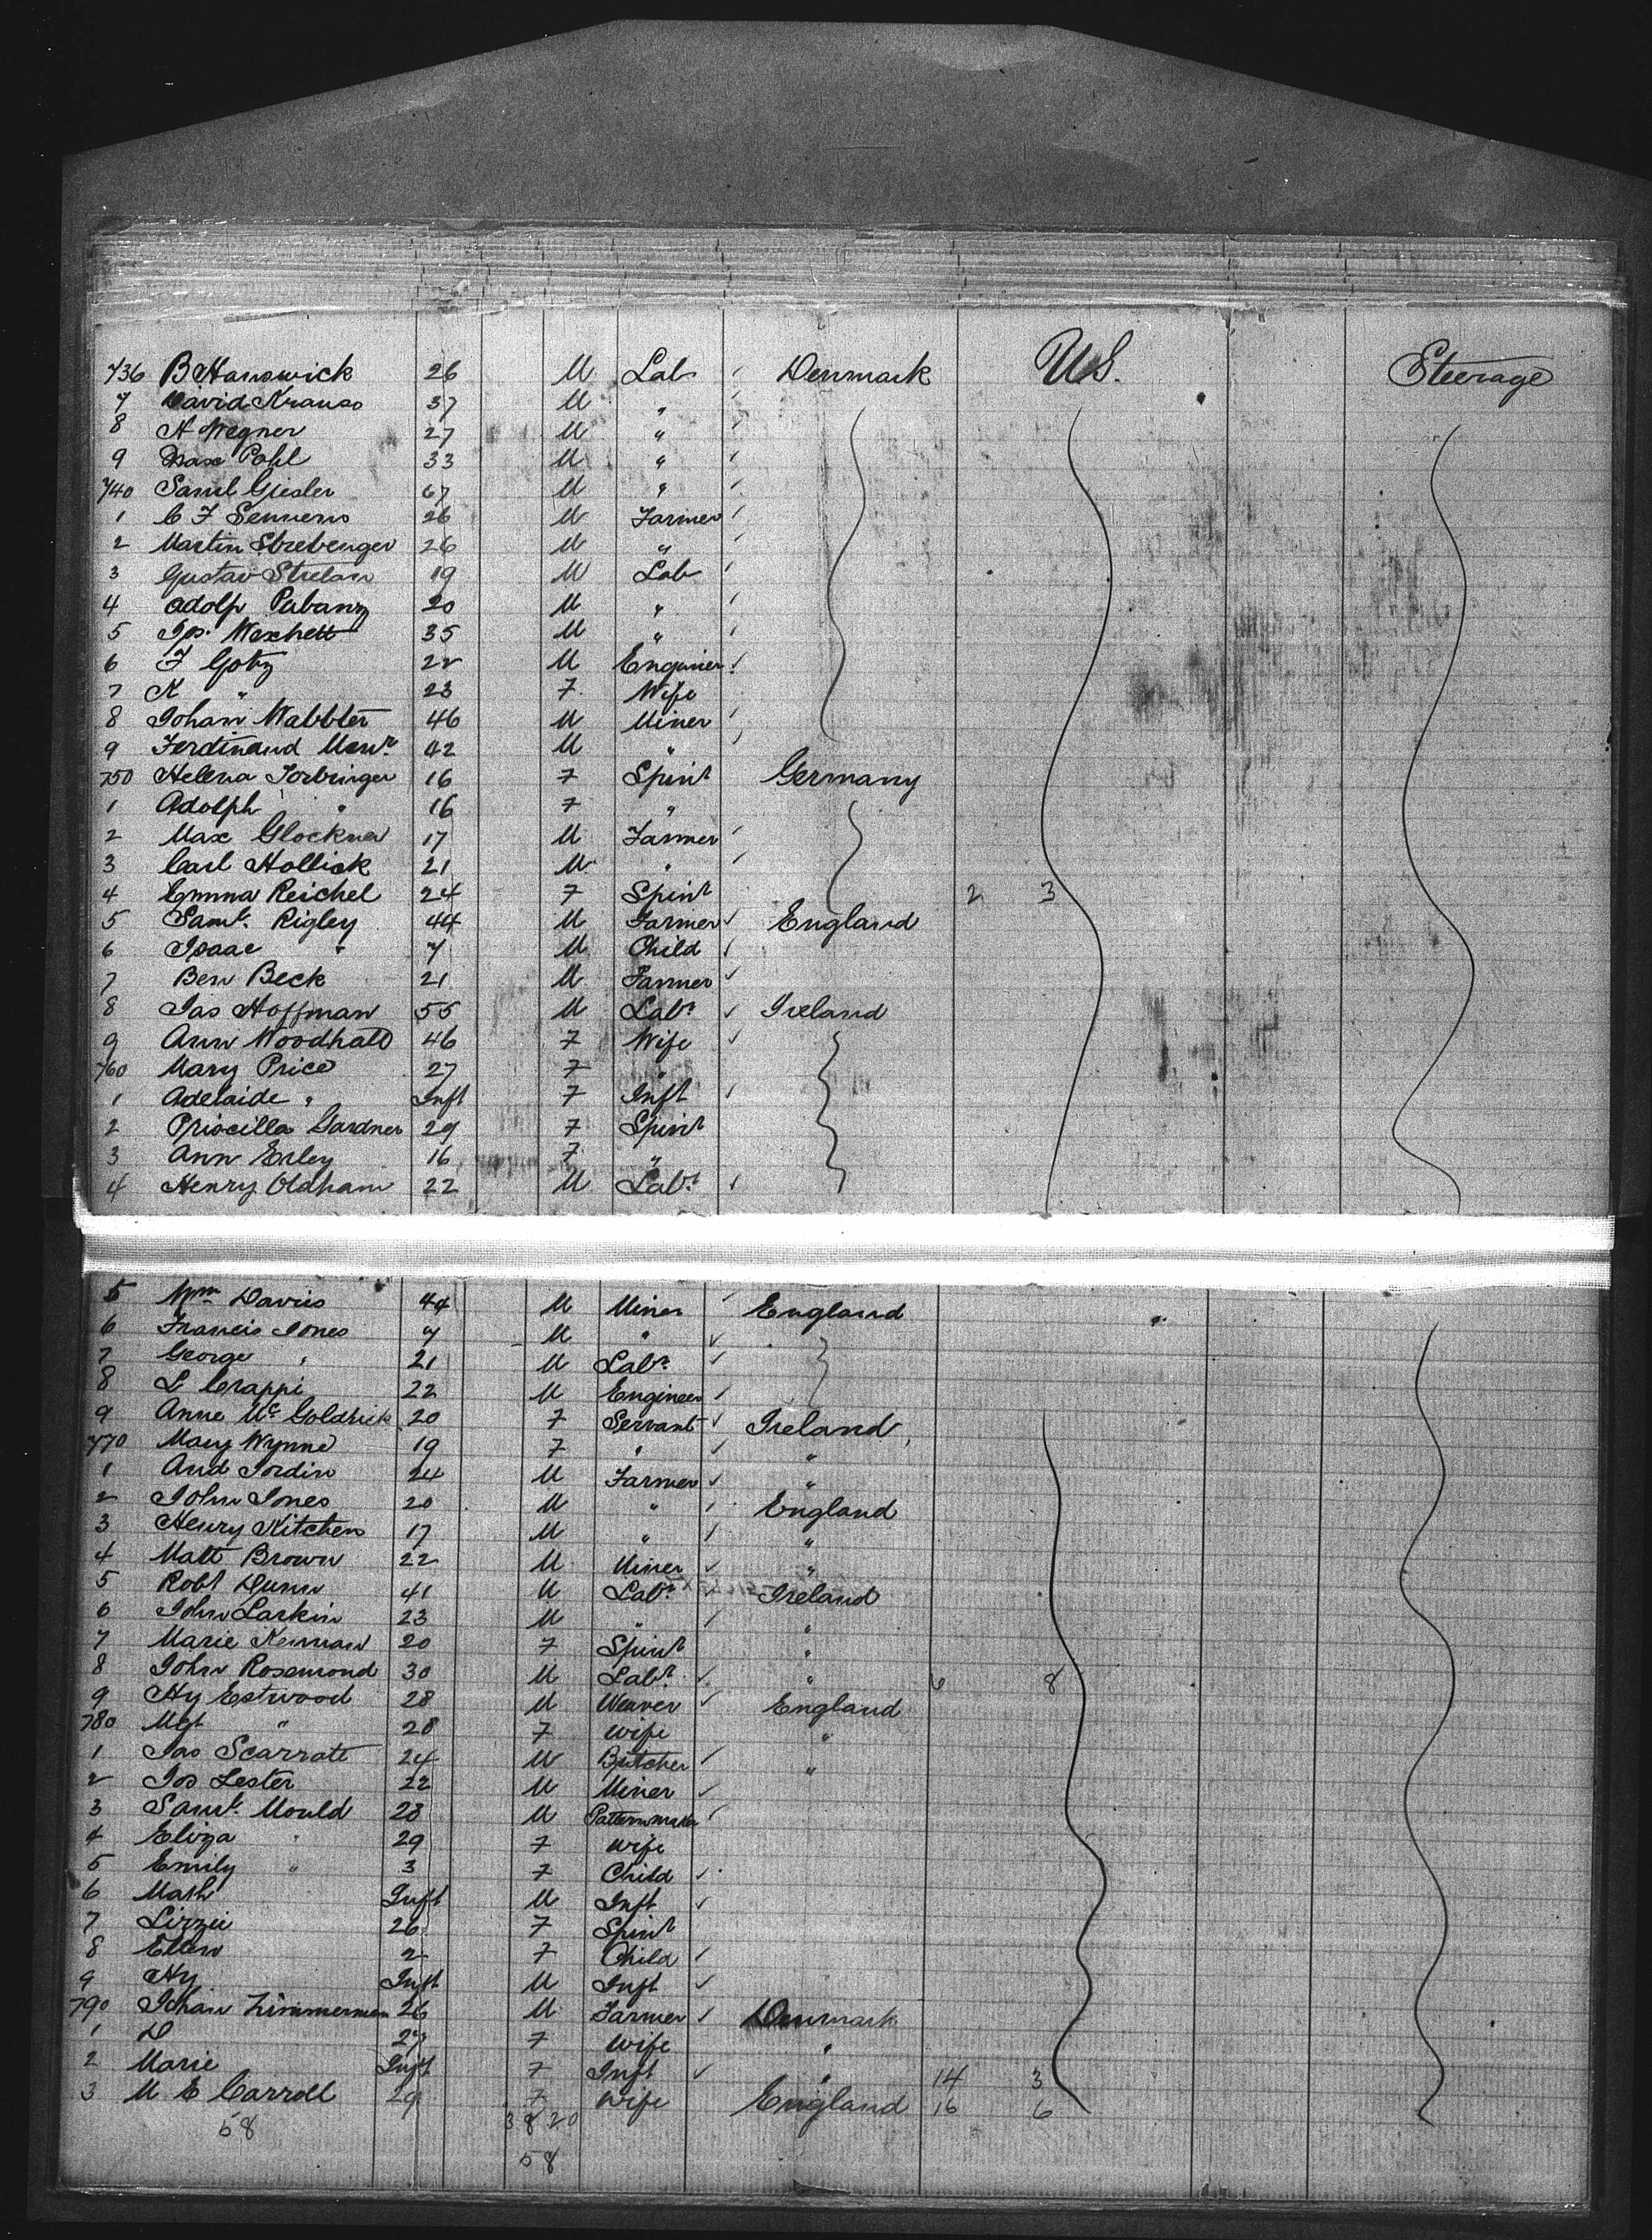 736 B Hanswick 26 M Lab Denmark U.S. Steerage
7 David Krauso 37 M "
8 A Wegner 27 M "
9 Max Pohl 33 M "
740 Saml Giesler 67 M "
1 C F Senners 26 M Farmer
2 Martin Strebenger 26 M "
3 Gustav Strelan 19 M Lab
4 Adolf Pubanz 20 M "
5 Jos. Weschett 35 M "
6 F Gotz 22 M Enginier
7 K " 23 F Wife
8 Johan Wabbter 46 M Miner
9 Ferdinand 42 M "
750 Helena Torbringer 16 F Spinr Germany
1 Adolph " 16 F "
2 Max Glockner 17 M Farmer
3 Carl Hollick 21 M "
4 Emma Reichel 24 F Spinr 2 3
5 Saml. Rigley 44 M Farmer England
6 Isaac " 7 M Child
7 Ben Beck 21 M Farmer
8 Jas Hoffman 55 M Labr Ireland
9 Ann Woodhall 46 F Wife
760 Mary Price 27 F "
1 Adelaide " Inft F Inft
2 Priscilla Gardner 29 F Spinr
3 Ann Erley 16 F "
4 Henry Oldham 22 M Labr
5 Wm Davies 44 M Miner England
6 Francis Jones 7 M "
7 George " 21 M Labr
8 L Crappi 22 M Engineer
9 Anne McGoldrick 20 F Servant Ireland
770 Mary Wynne 19 F " "
1 And Jordin 24 M Farmer "
2 John Jones 20 M " England
3 Henry Kitchen 17 M " "
4 Matt Brown 22 M Miner "
5 Robt Dunn 41 M Labr Ireland
6 John Larkin 23 M " "
7 Marie Kennan 20 F Spinr "
8 John Rosemond 30 M Labr " 6 8
9 Hy Estwood 28 M Weaver England
780 Mgt " 28 F Wife "
1 Jas Scarratt 24 M Butcher "
2 Jos Lester 22 M Miner
3 Saml. Mould 28 M Patternmaker
4 Eliza " 29 F Wife
5 Emily " 3 F Child
6 Math Inft M Inft
7 Lizzie 26 F Spinr
8 Ellen 2 F Child
9 Hy Inft M Inft
790 Johan Zimmerman 26 M Farmer Denmark
1 D 27 F Wife "
2 Marie Inft F Inft " 14 3
3 M E Carroll 29 F Wife England 16 6
58 38 20
58